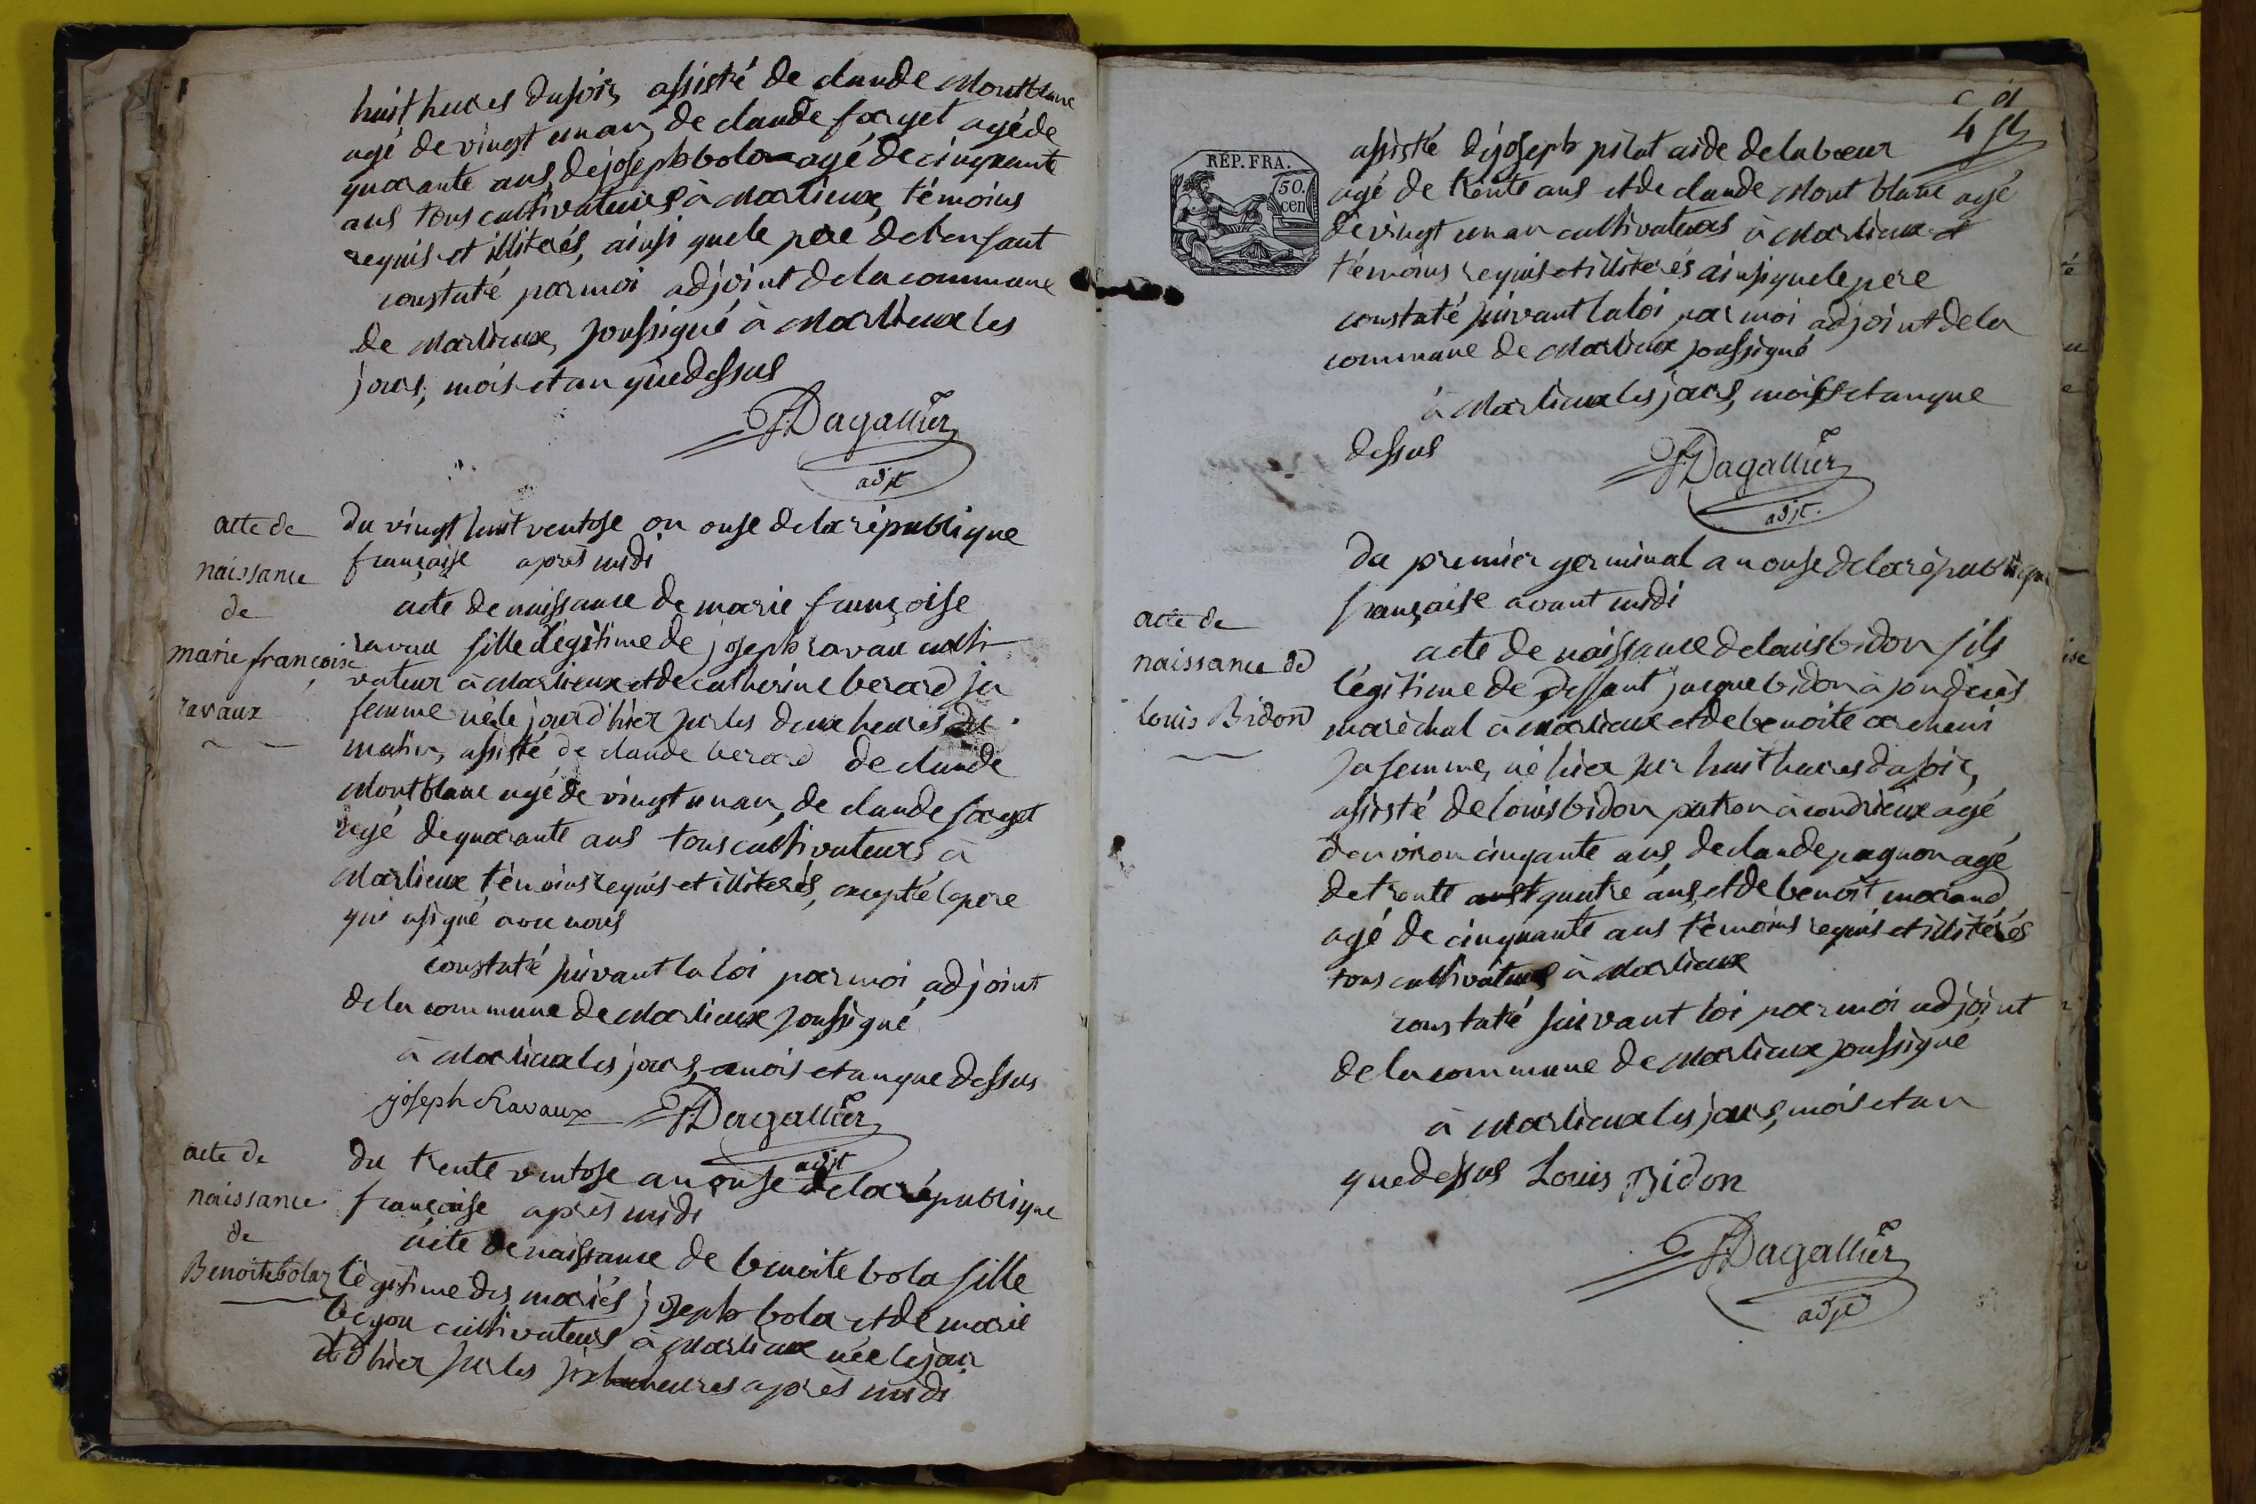 huit heures du soir, assisté de claude Montblanc
agé de vingt un an, de claude forget agé de
quarante ans, de joseph bola agé de cinquante
ans tous cultivateurs à Marlieux, témoins
requis et illiterés, ainsi que le pere de lenfant
constaté par moi adjoint de la commune
de Marlieux, soussigné à Marlieux les
jours, mois et an que dessus
Dagallier
adjt
acte de
naissance
de
marie françoise
ravaux
du vingt huit ventose an onse de la république
française après midi
acte de naissance de marie françoise
ravau fille légitime de joseph ravau culti-
vateur à Marlieux et de catherine berard sa
femme née le jour d'hier sur les deux heures du
matin, assisté de claude berard de claude
Montblanc agé de vingt un an, de claude forget
agé de quarante ans tous cultivateurs à
Marlieux, témoins requis et illiterés, excepté le pere
qui a signé avec nous
constaté suivant la loi par moi adjoint
de la commune de Marlieux soussigné
à Marlieux les jours, mois et an que dessus
joseph Ravaux Dagallier
adjt
acte de
naissance
de
Benoite bola
du trente ventose an onse de la république
française après midi
acte de naissance de benoite bola fille
légitime des mariés joseph bola et de marie
cultivateurs à Marlieux née le jour
d'hier sur les six heures après midi
REP. FRA.
50.
cen
assisté de joseph pilat aide de labeur
agé de trente ans et de claude Mont blanc agé
de vingt un an cultivateurs à Marlieux
témoins requis et illiterés ainsi que le pere
constaté suivant la loi par moi adjoint de la
commune de Marlieux soussigné
à Marlieux les jours, mois et an que
dessus
Dagallier
adjt.
acte de
naissance de
louis Bidon
du premier germinal an onse de la république
française avant midi
acte de naissance de louis bidon fils
légitime de deffunt jacque bidon à son décès
maréchal à Marlieux et de benoite
sa femme, né hier sur huit heures du soir,
assisté de louis bidon patron à condrieux agé
d'environ cinqante ans, de claude pagnon agé
de trente quatre ans, et de benoit morand
agé de cinquante ans témoins requis et illitérés
tous cultivateurs à Marlieux
constaté suivant loi par moi adjoint
de la commune de Marlieux soussigné
à Marlieux les jours, mois et an
que dessus Louis Bidon
Dagallier
adjt